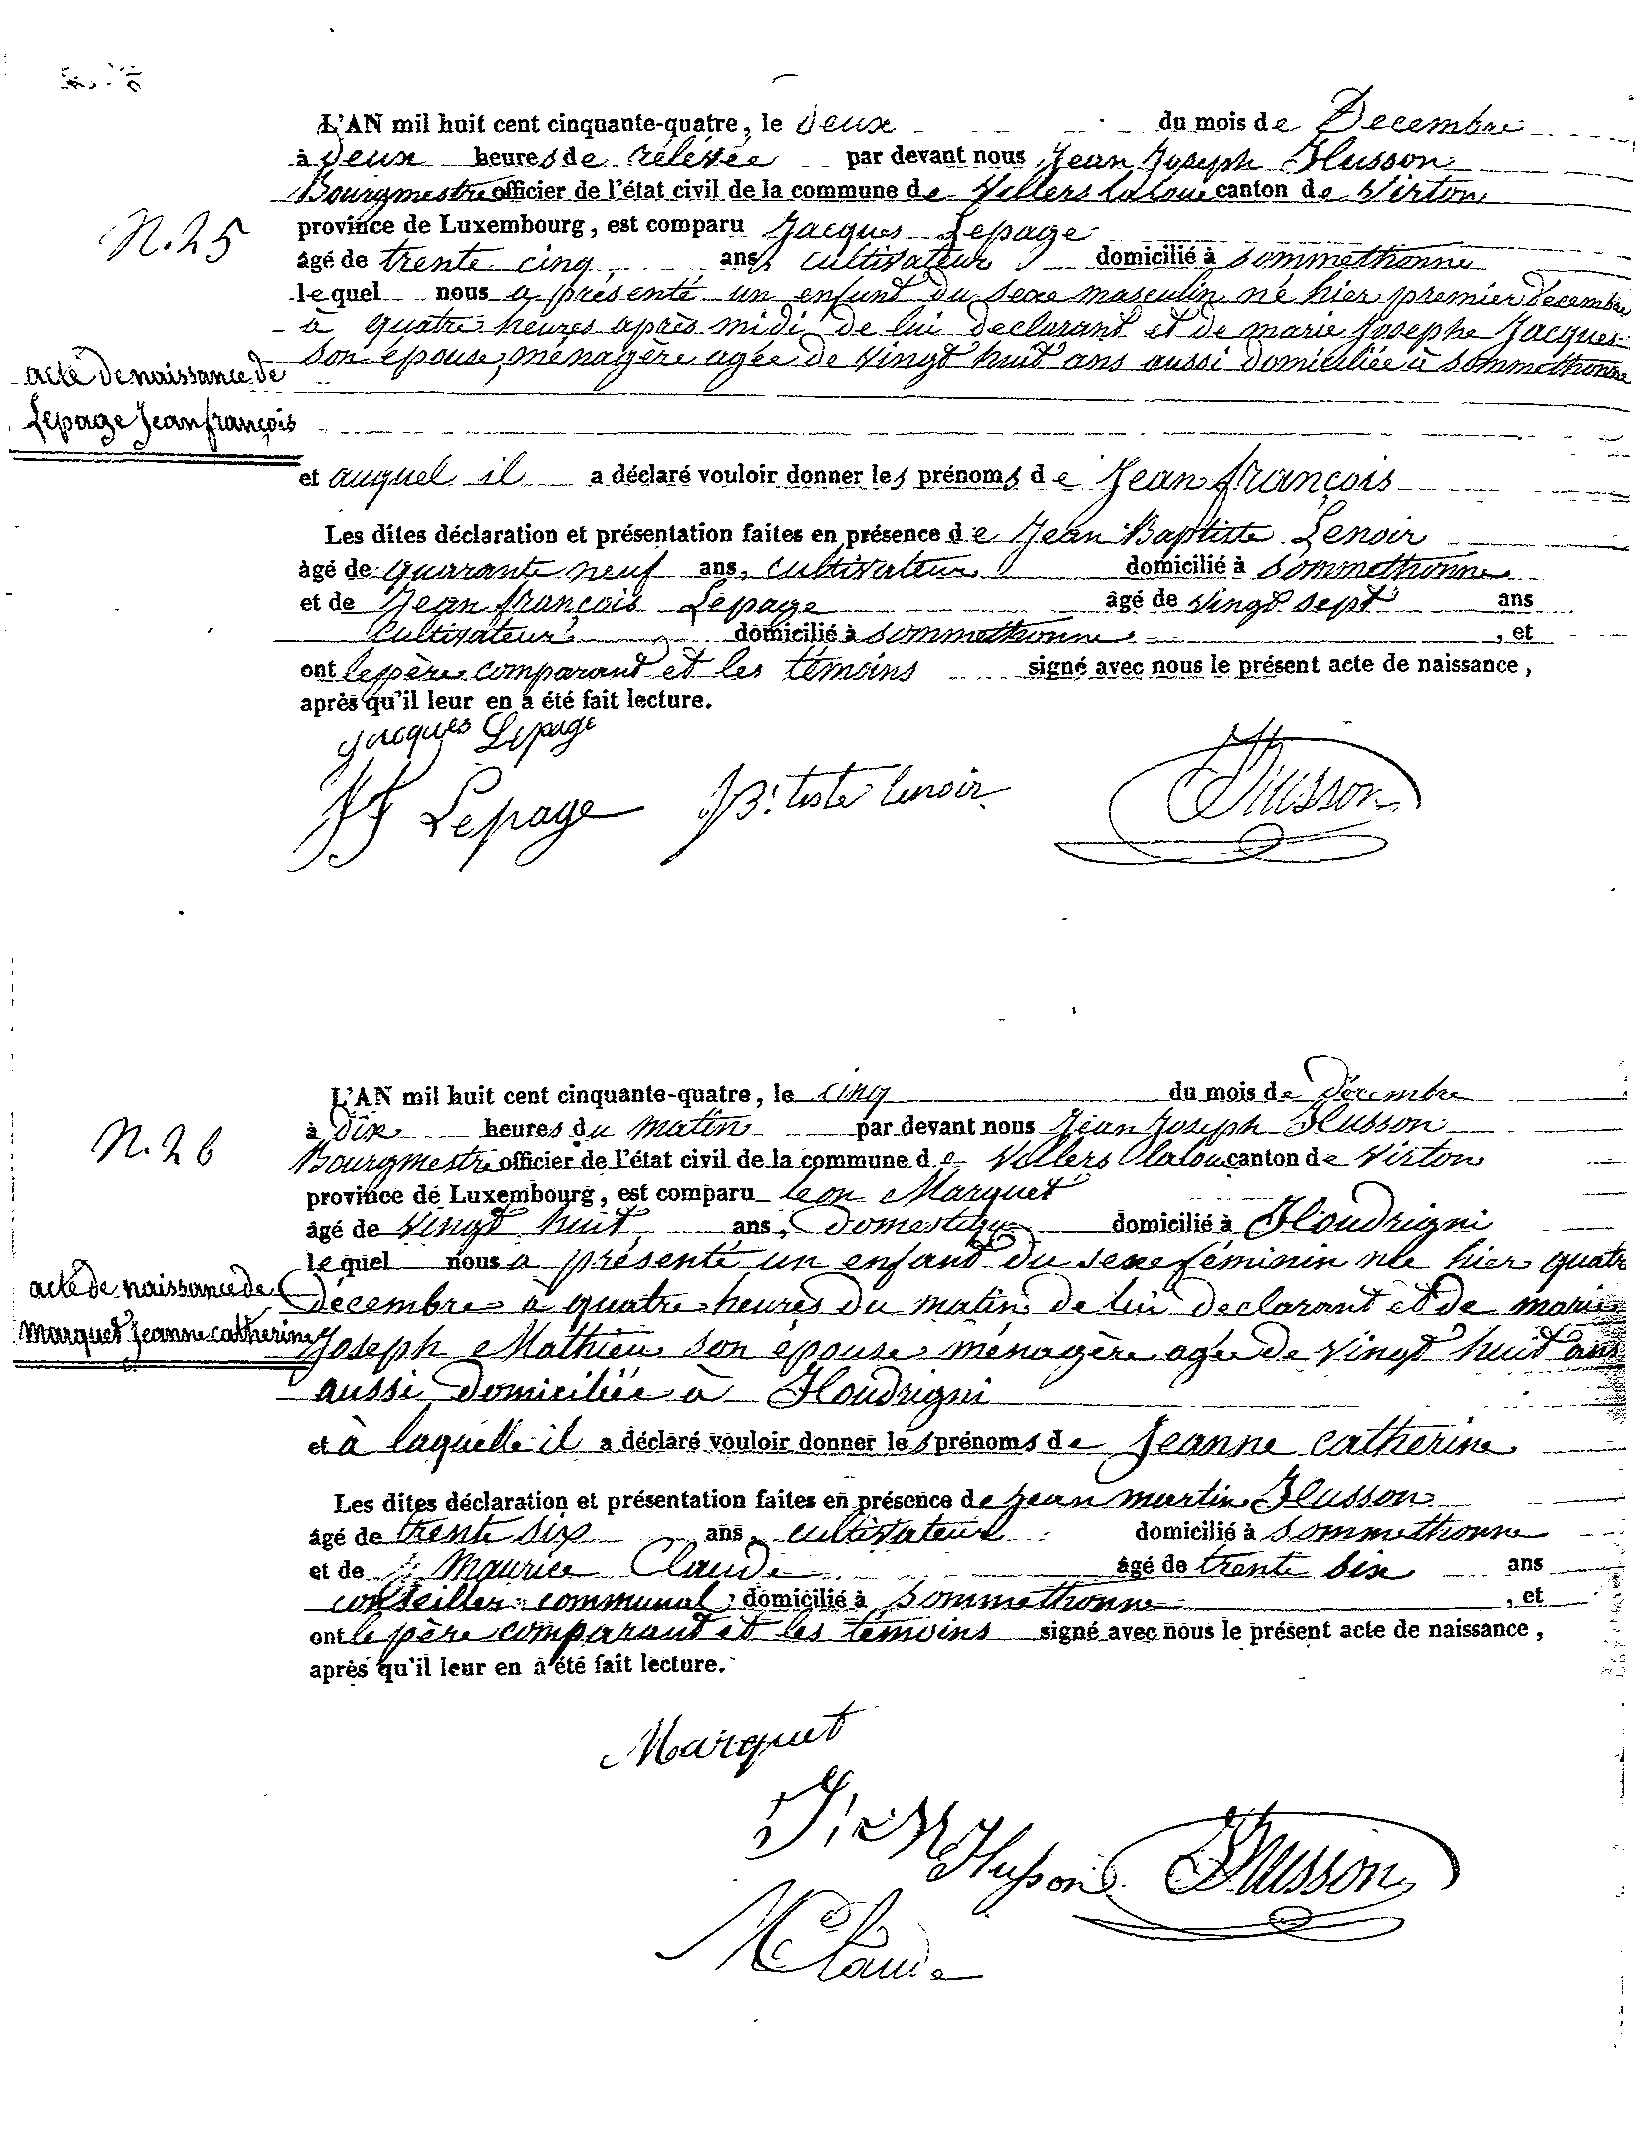 L'AN mil huit cent cinquante-quatre, le deux du mois de Decembre
à deux heures de rélevée par devant nous Jean Joseph Husson
Bourgmestre officier de l'état civil de la commune de Villers laloue canton de Virton
N. 25
province de Luxembourg, est comparu Jacques Lepage
âgé de trente cinq ans, cultivateur domicilié à Sommethonne
lequel nous a présenté un enfant du sexe masculin né hier premier decembre
à quatre heures après midi de lui declarant et de marie Josephe Jacques
son épouse, ménagère agée de vingt huit ans aussi domiciliée à Sommethonne
acte de naissance de
Lepage Jean françois
et auquel il a déclaré vouloir donner les prénoms de Jean françois
Les dites déclaration et présentation faites en présence de Jean Baptiste Lenoir
âgé de quarante neuf ans, cultivateur domicilié à Sommethonne
et de Jean françois Lepage âgé de vingt sept ans
Cultivateur domicilié à Sommethonne , et
ont le père comparant et les témoins signé avec nous le présent acte de naissance,
après qu'il leur en a été fait lecture.
Jacques Lepage
JF Lepage JB.tiste lenoir Husson
L'AN mil huit cent cinquante-quatre, le cinq du mois de décembre
à dix heures du matin par devant nous Jean Joseph Husson
N. 26
Bourgmestre officier de l'état civil de la commune de Villers laloue canton de Virton
province de Luxembourg, est comparu leon Marquet
âgé de vingt huit ans, domestique domicilié à Houdrigni
lequel nous a présenté un enfant du sexe féminin née hier quatre
acte de naissance de
décembre à quatre heures du matin de lui declarant et de marie
marquet Jeanne catherine
Joseph Mathieu son épouse ménagère agée de vingt huit ans
aussi domiciliée à Houdrigni
et à laquelle il a déclaré vouloir donner les prénoms de Jeanne catherine
Les dites déclaration et présentation faites en présence de jean martin Husson
âgé de trente six ans, cultivateur domicilié à Sommethonne
et de Maurice Claude âgé de trente six ans
conseiller communal, domicilié à Sommethonne , et
ont le père comparant et les témoins signé avec nous le présent acte de naissance,
après qu'il leur en a été fait lecture.
Marquet
Husson Husson
M Claude